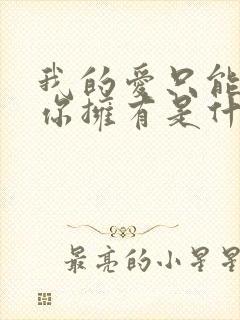 我的愛只能
你擁有是什
最亮的小星星